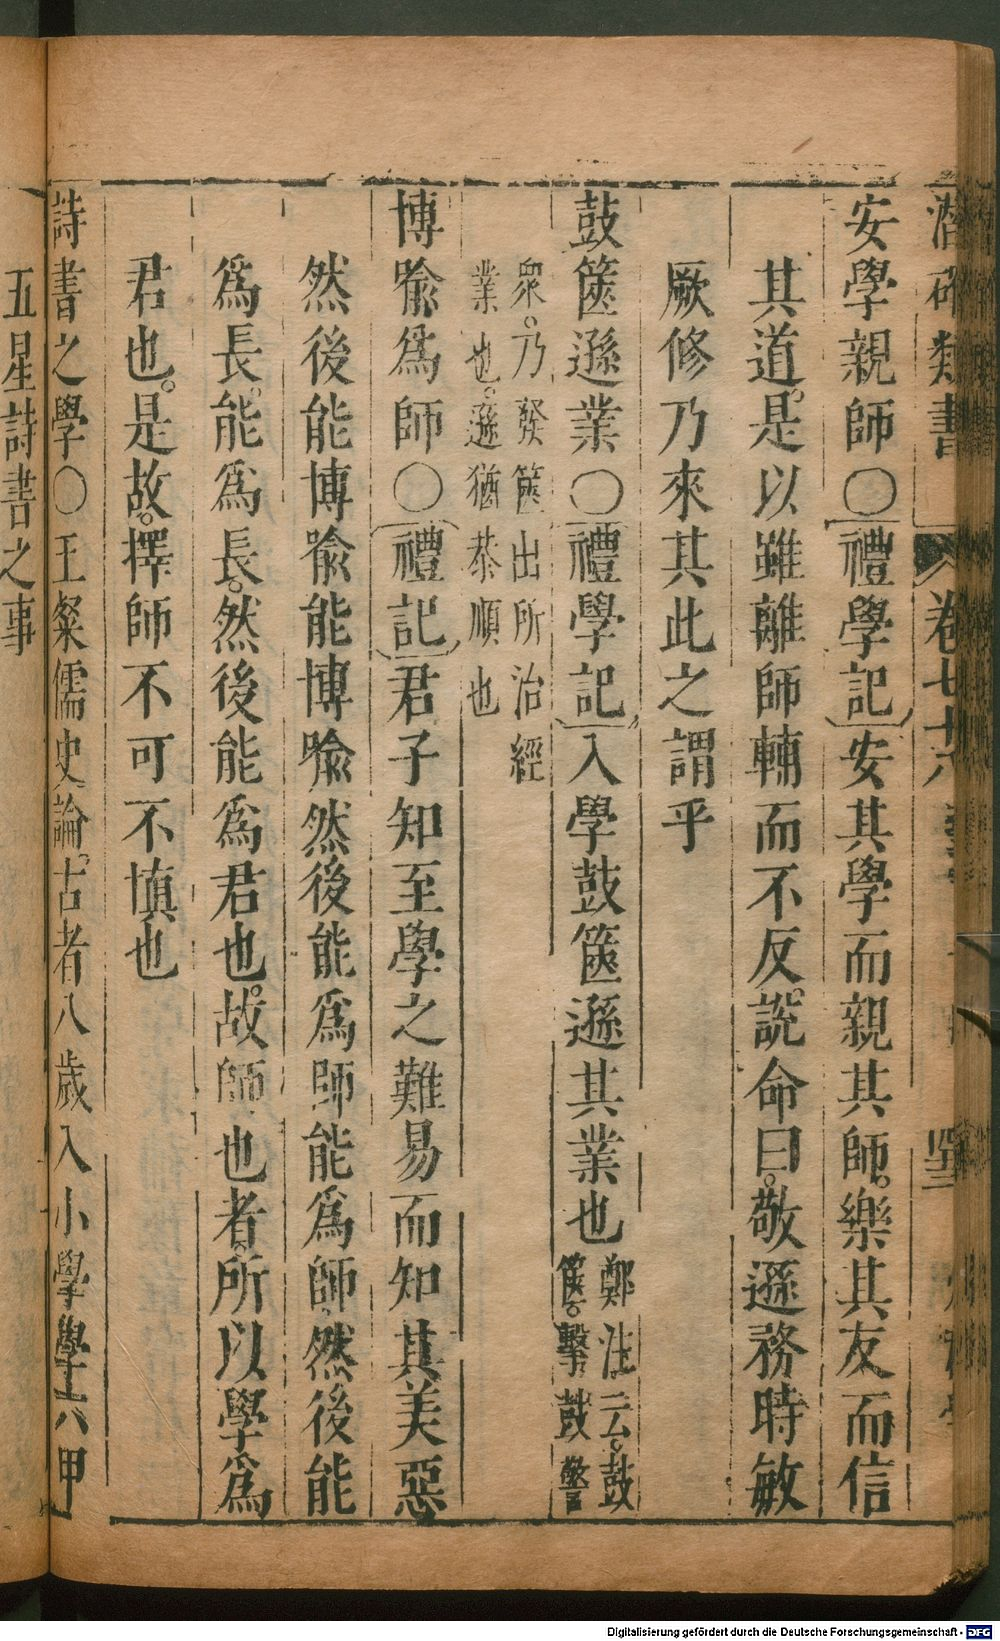 潛確類書
卷七十六
安學親師○禮學記安其學而親其師樂其友而信
其道是以雖離師輔而不反說命曰敬遜務時敏
厥修乃來其此之謂乎
鼓篋遜業○禮學記入學鼓篋遜其業也鄭注云鼓
篋擊鼓警
衆乃發篋出所治經
業也遜猶恭順也
博喩爲師○禮記君子知至學之難易而知其美惡
然後能博喩能博喩然後能爲師能爲師然後能
爲長能爲長然後能爲君也故師也者所以學爲
君也是故擇師不可不慎也
詩書之學○王粲儒史論古者八歲入小學學六甲
五星詩書之事
Digitalisierung gefördert durch die Deutsche Forschungsgemeinschaft - DFG